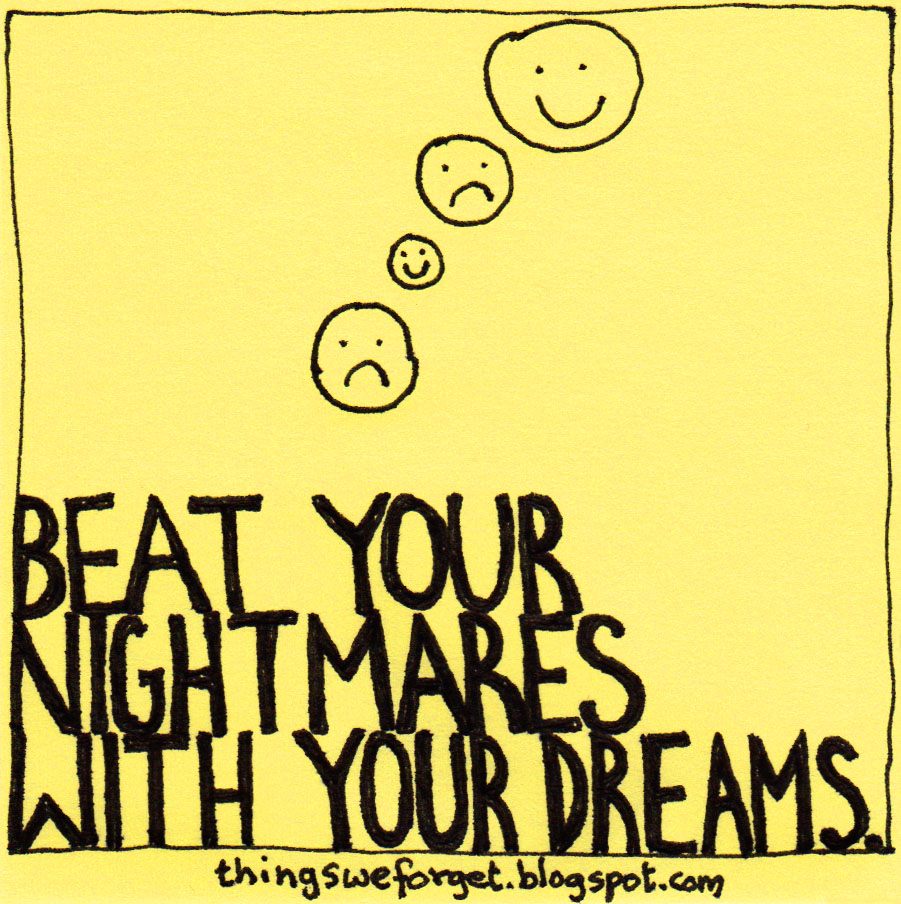 BEAT YOUR
NIGHTMARES
WITH YOUR DREAMS.
thingsweforget.blogspot.com